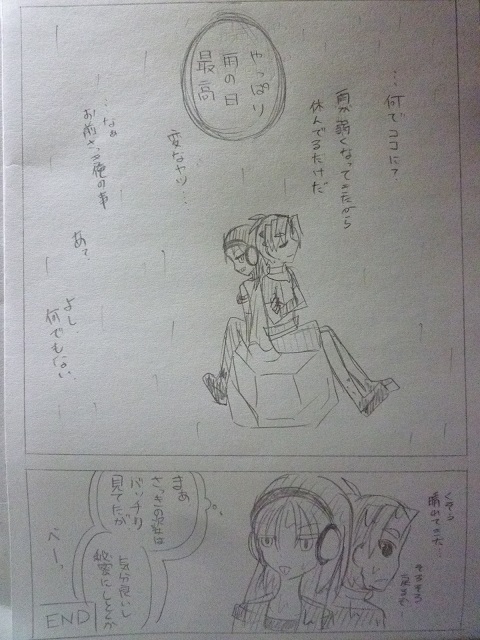 …何でココに？
雨が弱くなってきたから
休んでるだけだ
やっぱり
雨の日
最高
変なヤツ…
…なぁ
お前さっき俺の事
あ？
よし
何でもない
くそう
晴れてきた…
そろそろ
戻るか
まぁ
さっきの涙は
バッチリ
見てたが
気分良いし
秘密にしとくか
べーっ
END